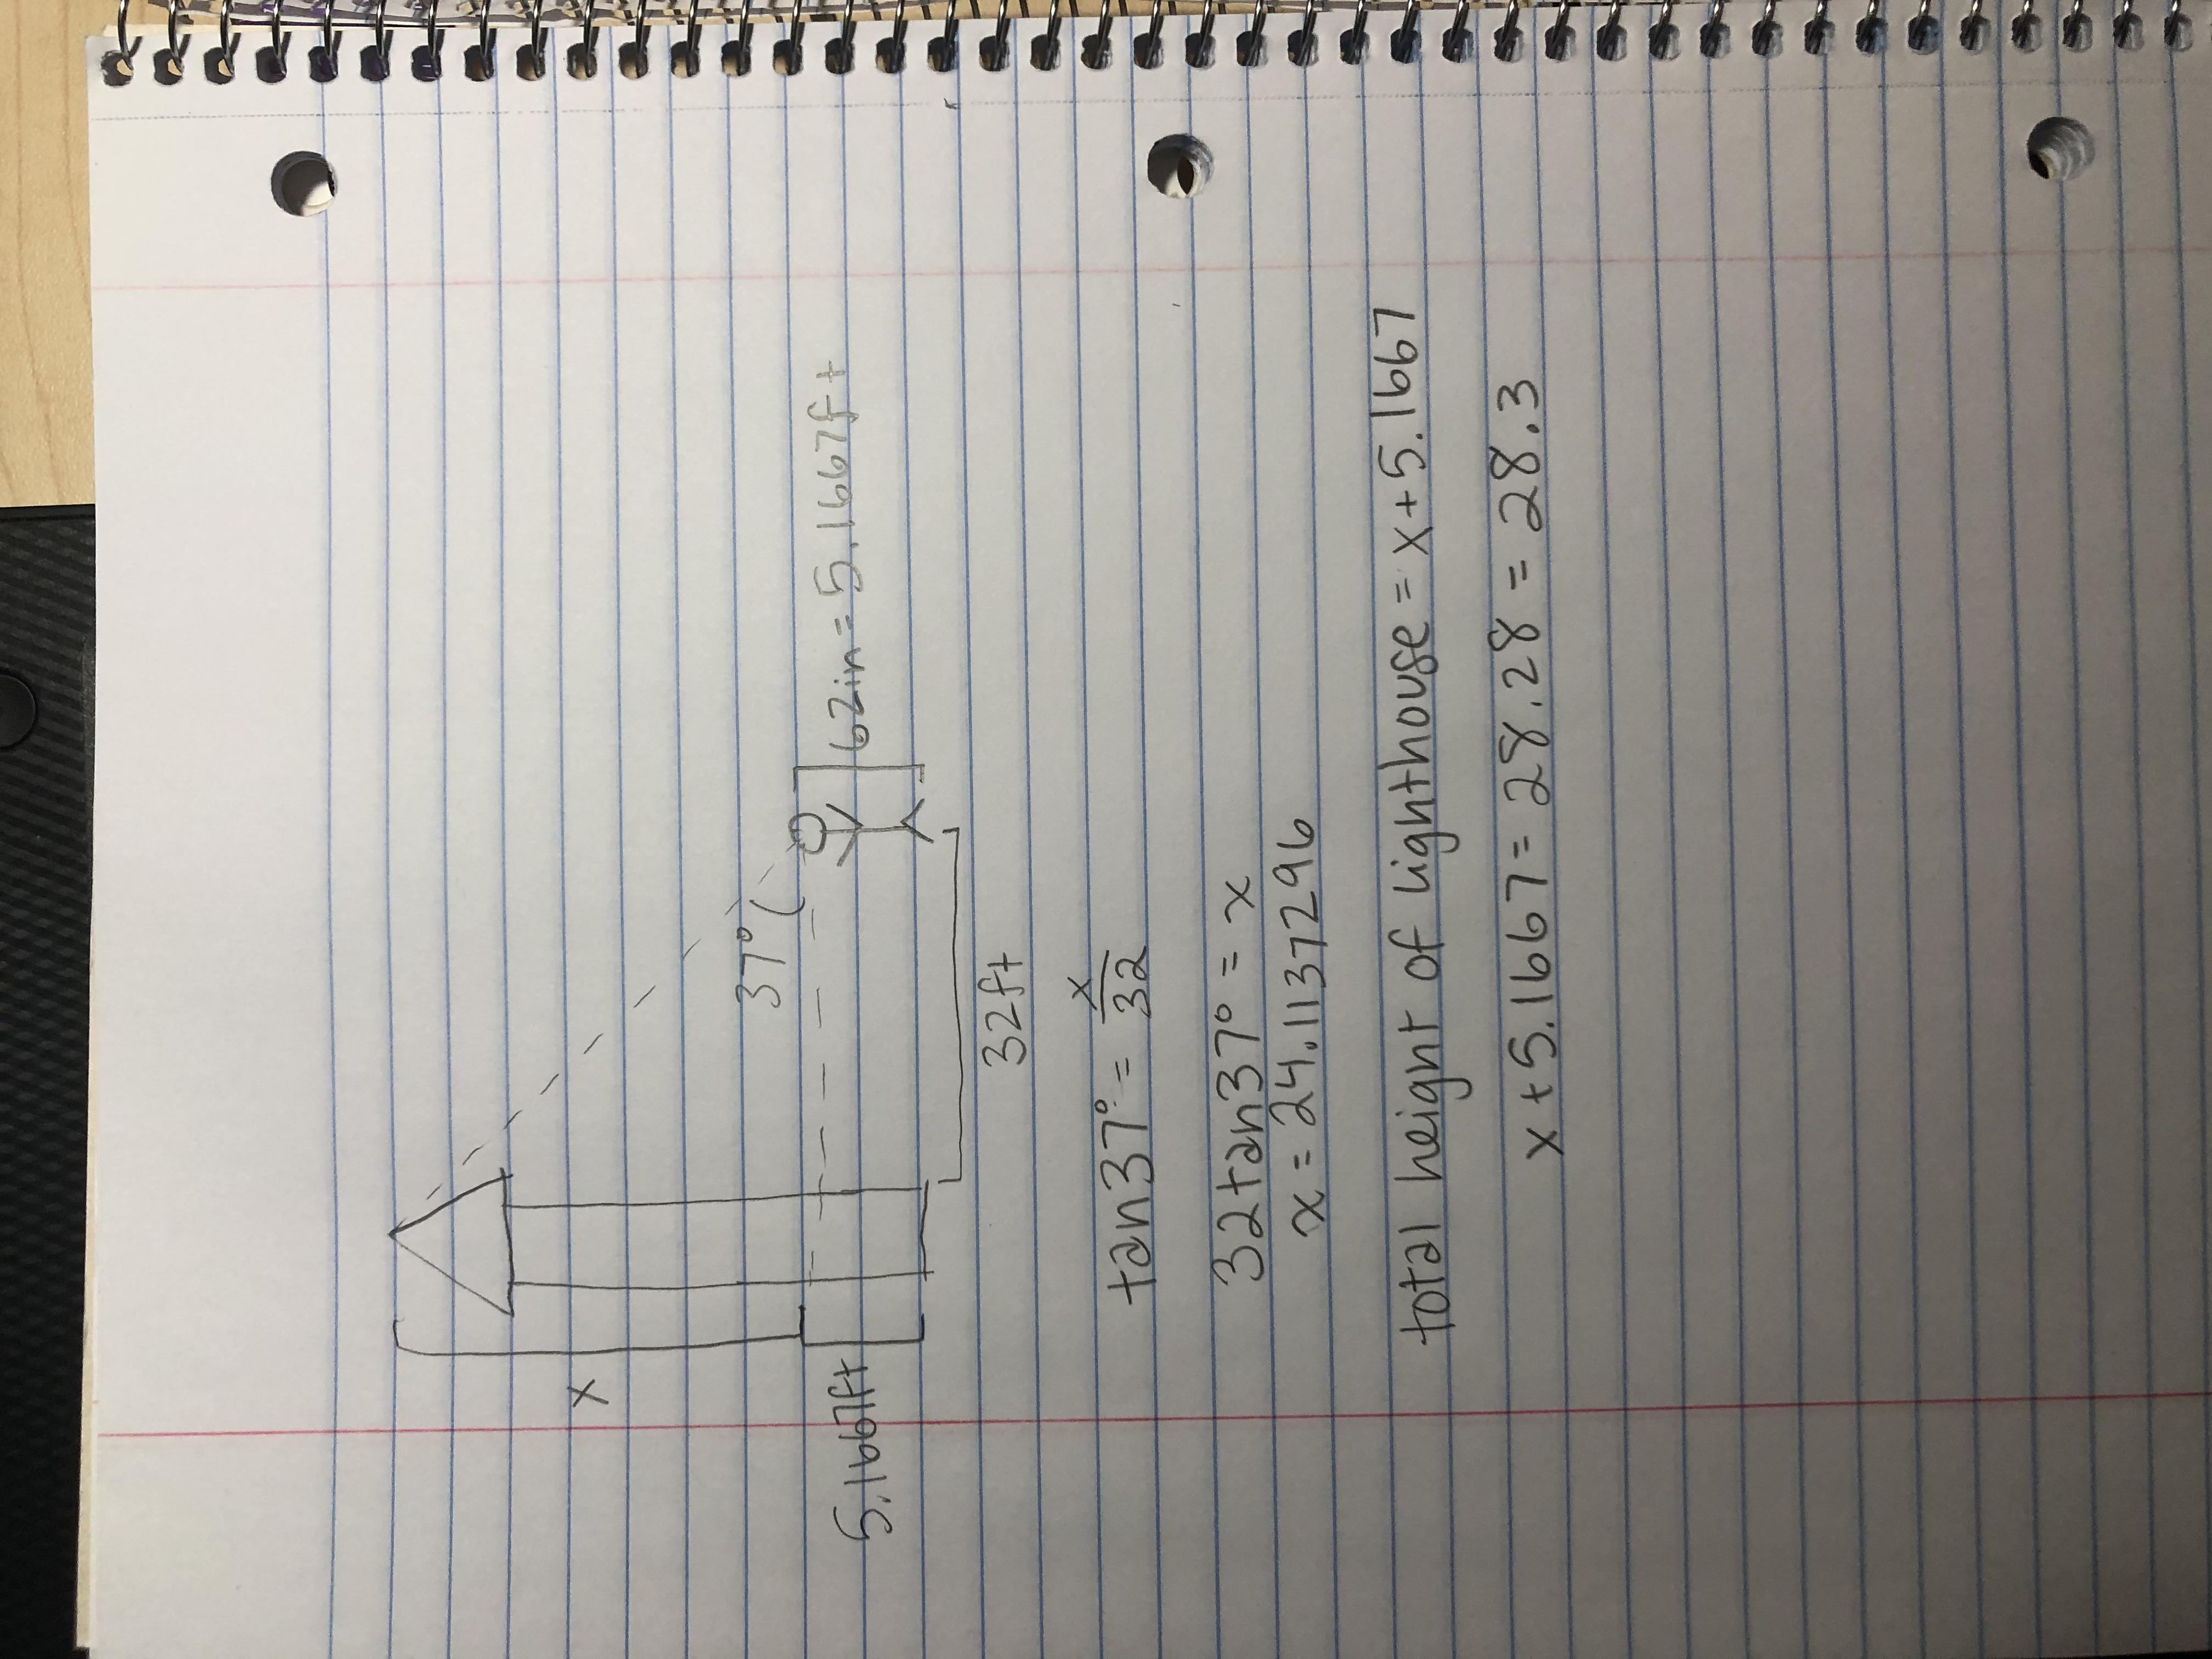 x
5.1667ft
37°
62in = 5.1667ft
32ft
tan37° = x/32
32tan37° = x
x = 24.1137296
total height of lighthouse = x+5.1667
x+5.1667 = 28.28 = 28.3